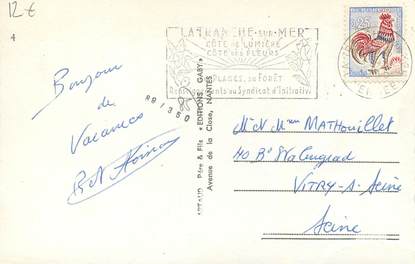 12 €
4
LA TRANCHE-SUR-MER
CÔTE DE LUMIÈRE
CÔTE DES FLEURS
PLAGES, 500 FORÊT
Renseignements au Syndicat d'Initiative
0,25
Bonjour
de
Vacances
RB/350
ARTAUD Père & Fils « EDITIONS GABY »
Avenue de la Close, NANTES
M. M Mme MATHOUILLET
40 Bd Stalingrad
VITRY-S-Seine
Seine